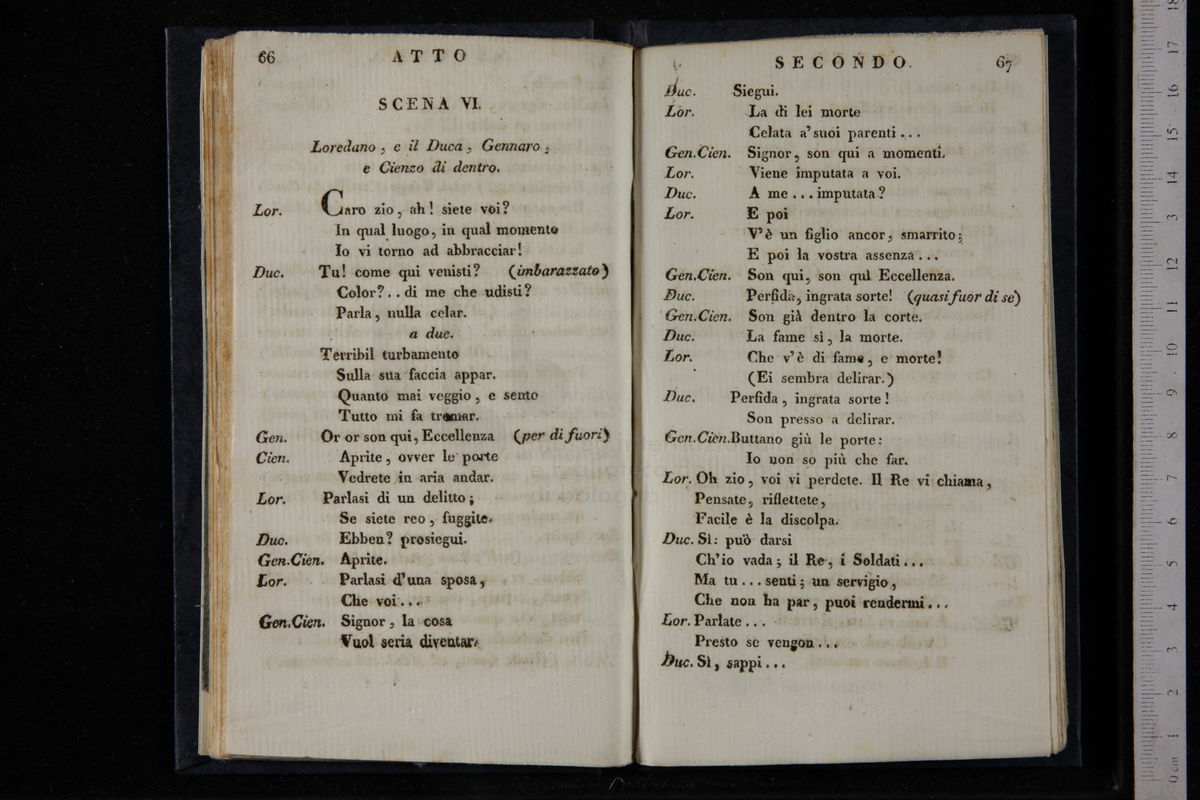 66
ATTO
SCENA VI.
Loredano, e il Duca, Gennaro,
e Cienzo di dentro.
Lor. Caro zio, ah! siete voi?
In qual luogo, in qual momento
Io vi torno ad abbracciar!
Duc. Tu! come qui venisti? (imbarazzato)
Color?.. di me che udisti?
Parla, nulla celar.
a due.
Terribil turbamento
Sulla sua faccia appar.
Quanto mai veggio, e sento
Tutto mi fa tremar.
Gen. Or or son qui, Eccellenza (per di fuori)
Cien. Aprite, ovver le porte
Vedrete in aria andar.
Lor. Parlasi di un delitto;
Se siete reo, fuggite.
Duc. Ebben? prosiegui.
Gen.Cien. Aprite.
Lor. Parlasi d'una sposa,
Che voi...
Gen.Cien. Signor, la cosa
Vuol seria diventar.
SECONDO.
67
Duc. Siegui.
Lor. La di lei morte
Celata a' suoi parenti...
Gen.Cien. Signor, son qui a momenti.
Lor. Viene imputata a voi.
Duc. A me... imputata?
Lor. E poi
V'è un figlio ancor, smarrito;
E poi la vostra assenza...
Gen.Cien. Son qui, son qui Eccellenza.
Duc. Perfida, ingrata sorte! (quasi fuor di se)
Gen.Cien. Son già dentro la corte.
Duc. La fame sì, la morte.
Lor. Che v'è di fame, e morte!
(Ei sembra delirar.)
Duc. Perfida, ingrata sorte!
Son presso a delirar.
Gen.Cien. Buttano giù le porte:
Io non so più che far.
Lor. Oh zio, voi vi perdete. Il Re vi chiama,
Pensate, riflettete,
Facile è la discolpa.
Duc. Sì: può darsi
Ch'io vada; il Re, i Soldati...
Ma tu... senti; un servigio,
Che non ha par, puoi rendermi...
Lor. Parlate...
Presto se vengon...
Duc. Sì, sappi...